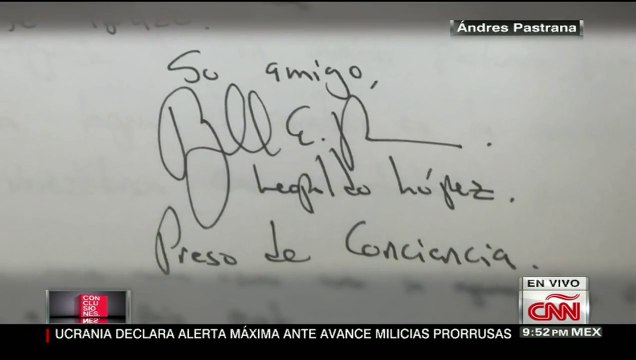 Ándres Pastrana
Su amigo,
Leopoldo López.
Preso de Conciencia.
CONCLU
SIONES.
EN VIVO
CNN
UCRANIA DECLARA ALERTA MÁXIMA ANTE AVANCE MILICIAS PRORRUSAS
9:52PM MEX